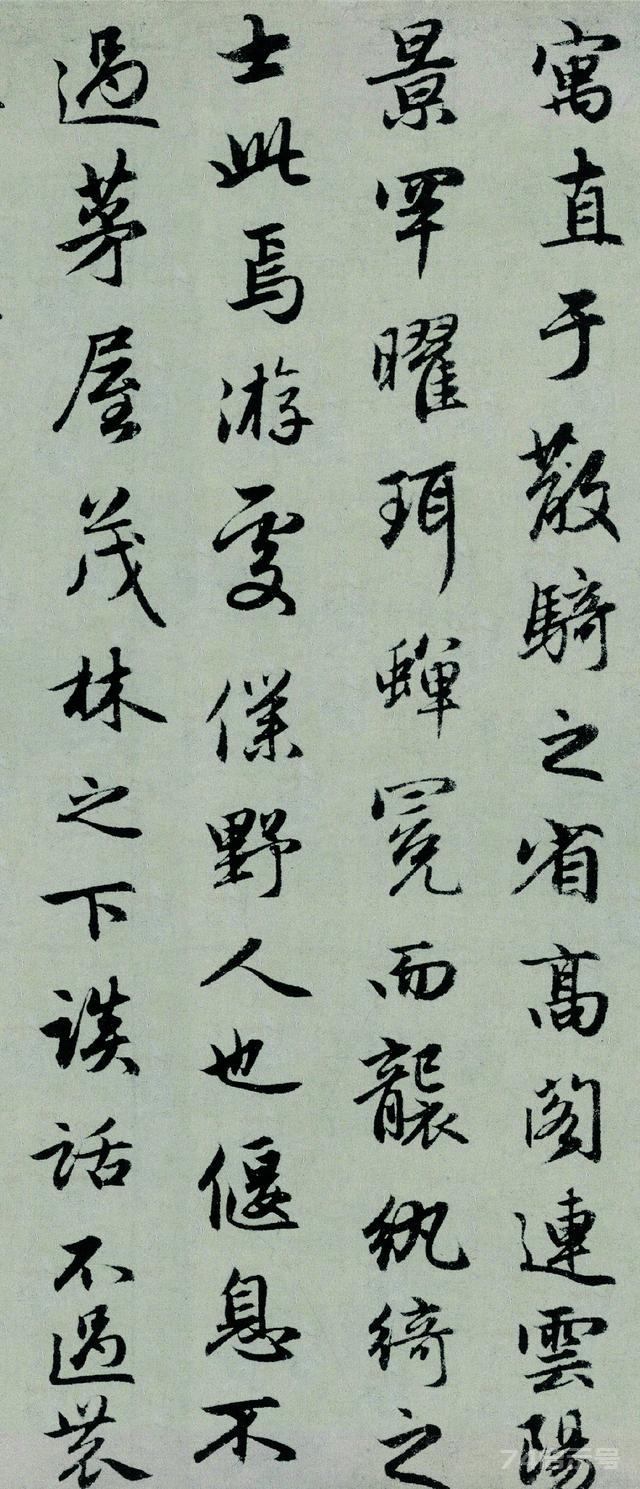 寓直于散騎之省高閣連雲陽
景罕曜珥蟬冕而襲紈綺之
士此焉游處僕野人也偃息不
過茅屋茂林之下談話不過農